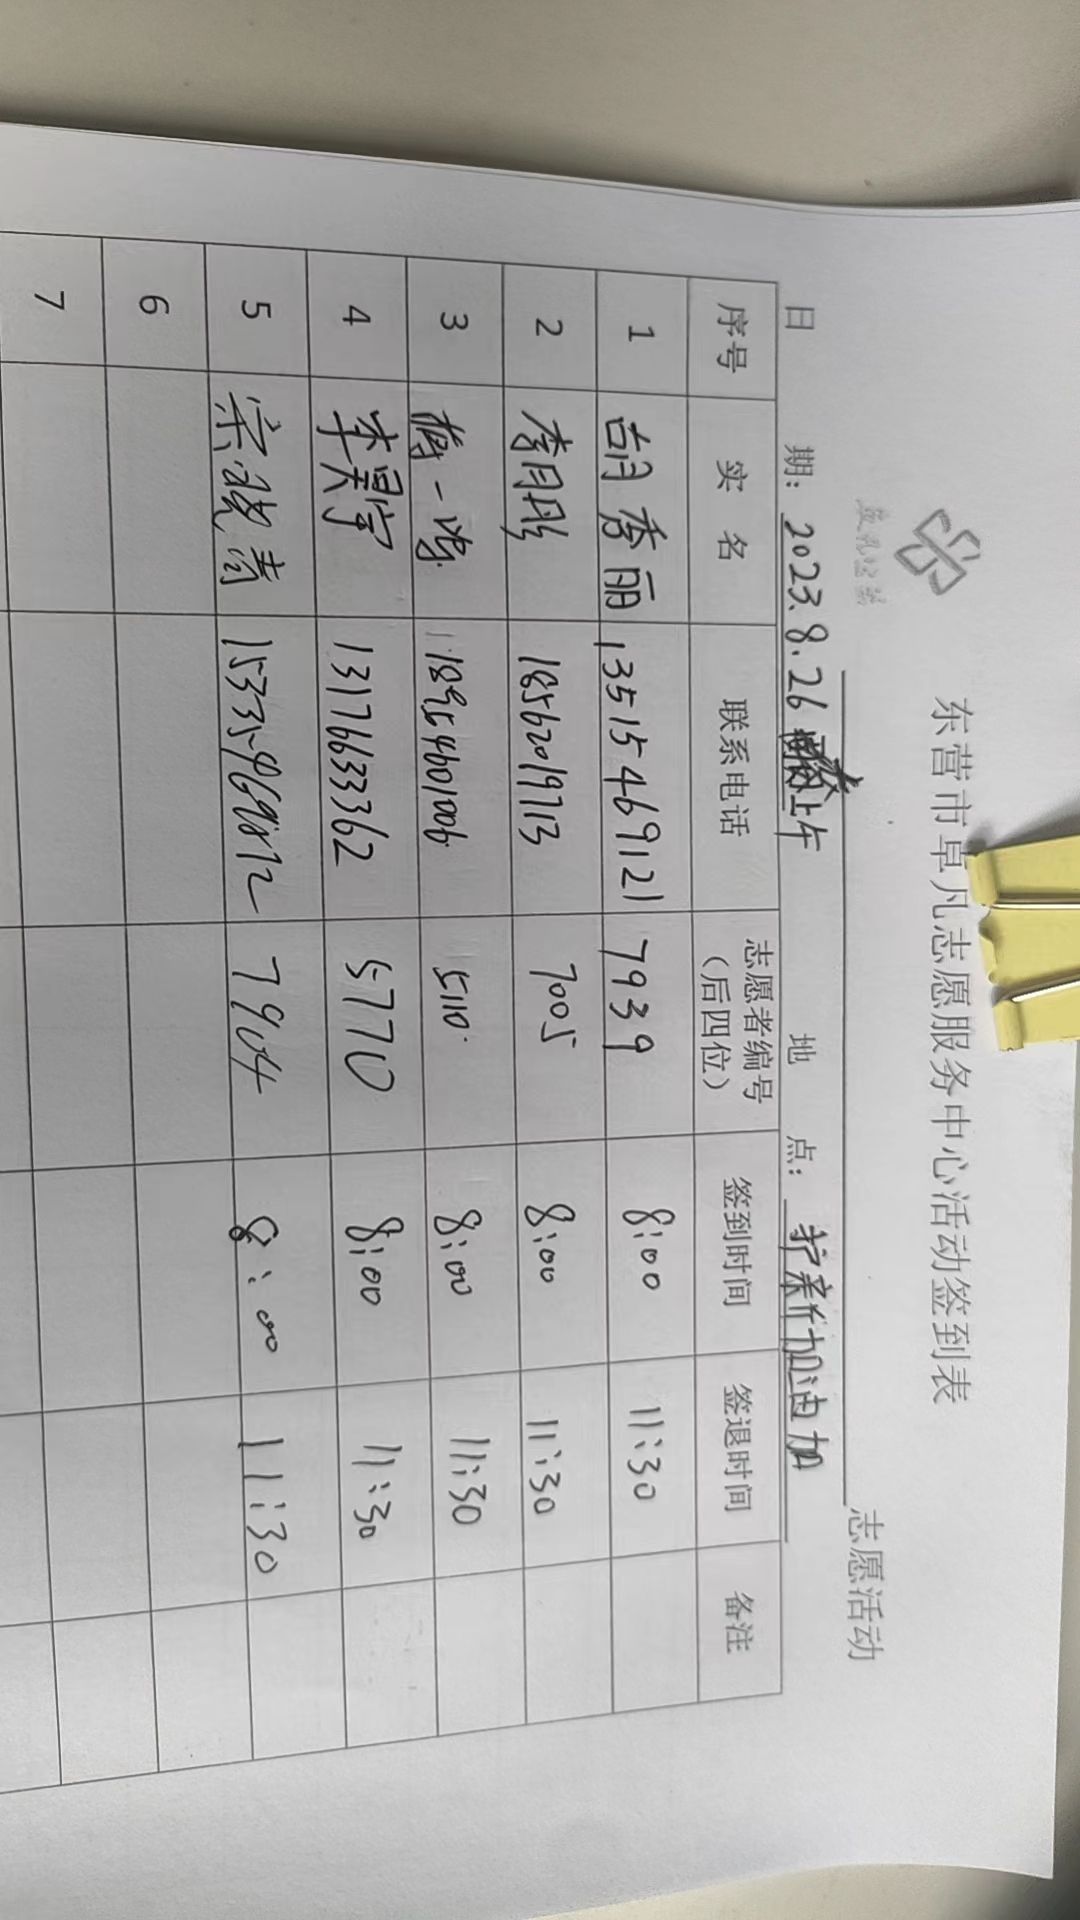 东营市卓凡志愿服务中心活动签到表
志愿活动
日 期：2023.8.26 上午 地 点：护新加油加
序号 实 名 联系电话 志愿者编号（后四位） 签到时间 签退时间 备注
1 胡秀丽 13515469121 7939 8:00 11:30
2 李月彤 18562019713 7005 8:00 11:30
3 一鸿 18954601006 5110 8:00 11:30
4 李昊宇 13176633362 5770 8:00 11:30
5 宋 青 15335469812 7904 8:00 11:30
6
7